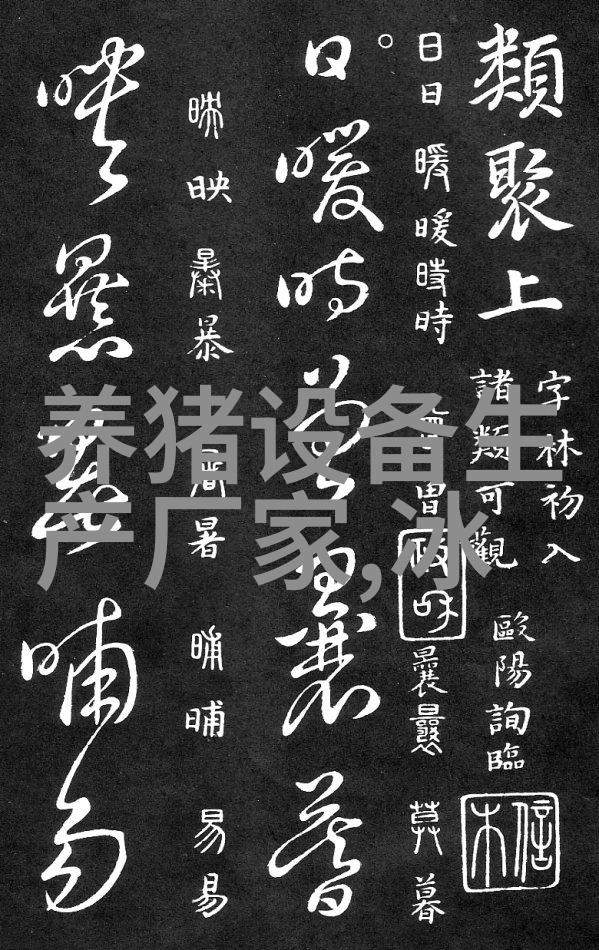 類聚上
字林初入
諸類可觀
歐陽詢臨
信本
日日 暖暖 時時 曾 莫暮
日暖時曾曩暮
映 暴 暑 晡晡 易易
映暴暑晡易
养猪设备生
产厂家,冰